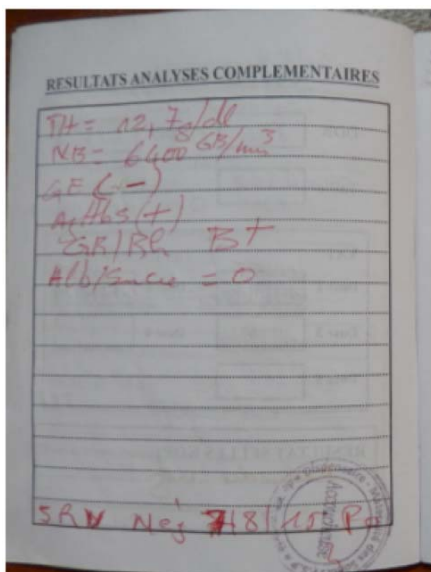 RESULTATS ANALYSES COMPLEMENTAIRES
TH= 12,7g/dl
NB= 6400 GB/mm³
GE (-)
Ag Hbs (+)
GR/Rh B+
Alb/Sucre = 0
SRV Nég 7/8/15